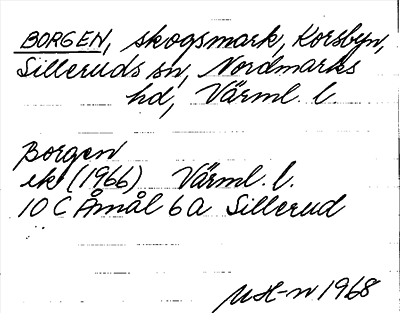 BORGEN, skogsmark, Korsbyn,
Silleruds sn, Nordmarks
hd, Värml. l.
Borgen
ek (1966) Värml. l.
10 C Åmål 6 a Sillerud
MH-n 1968